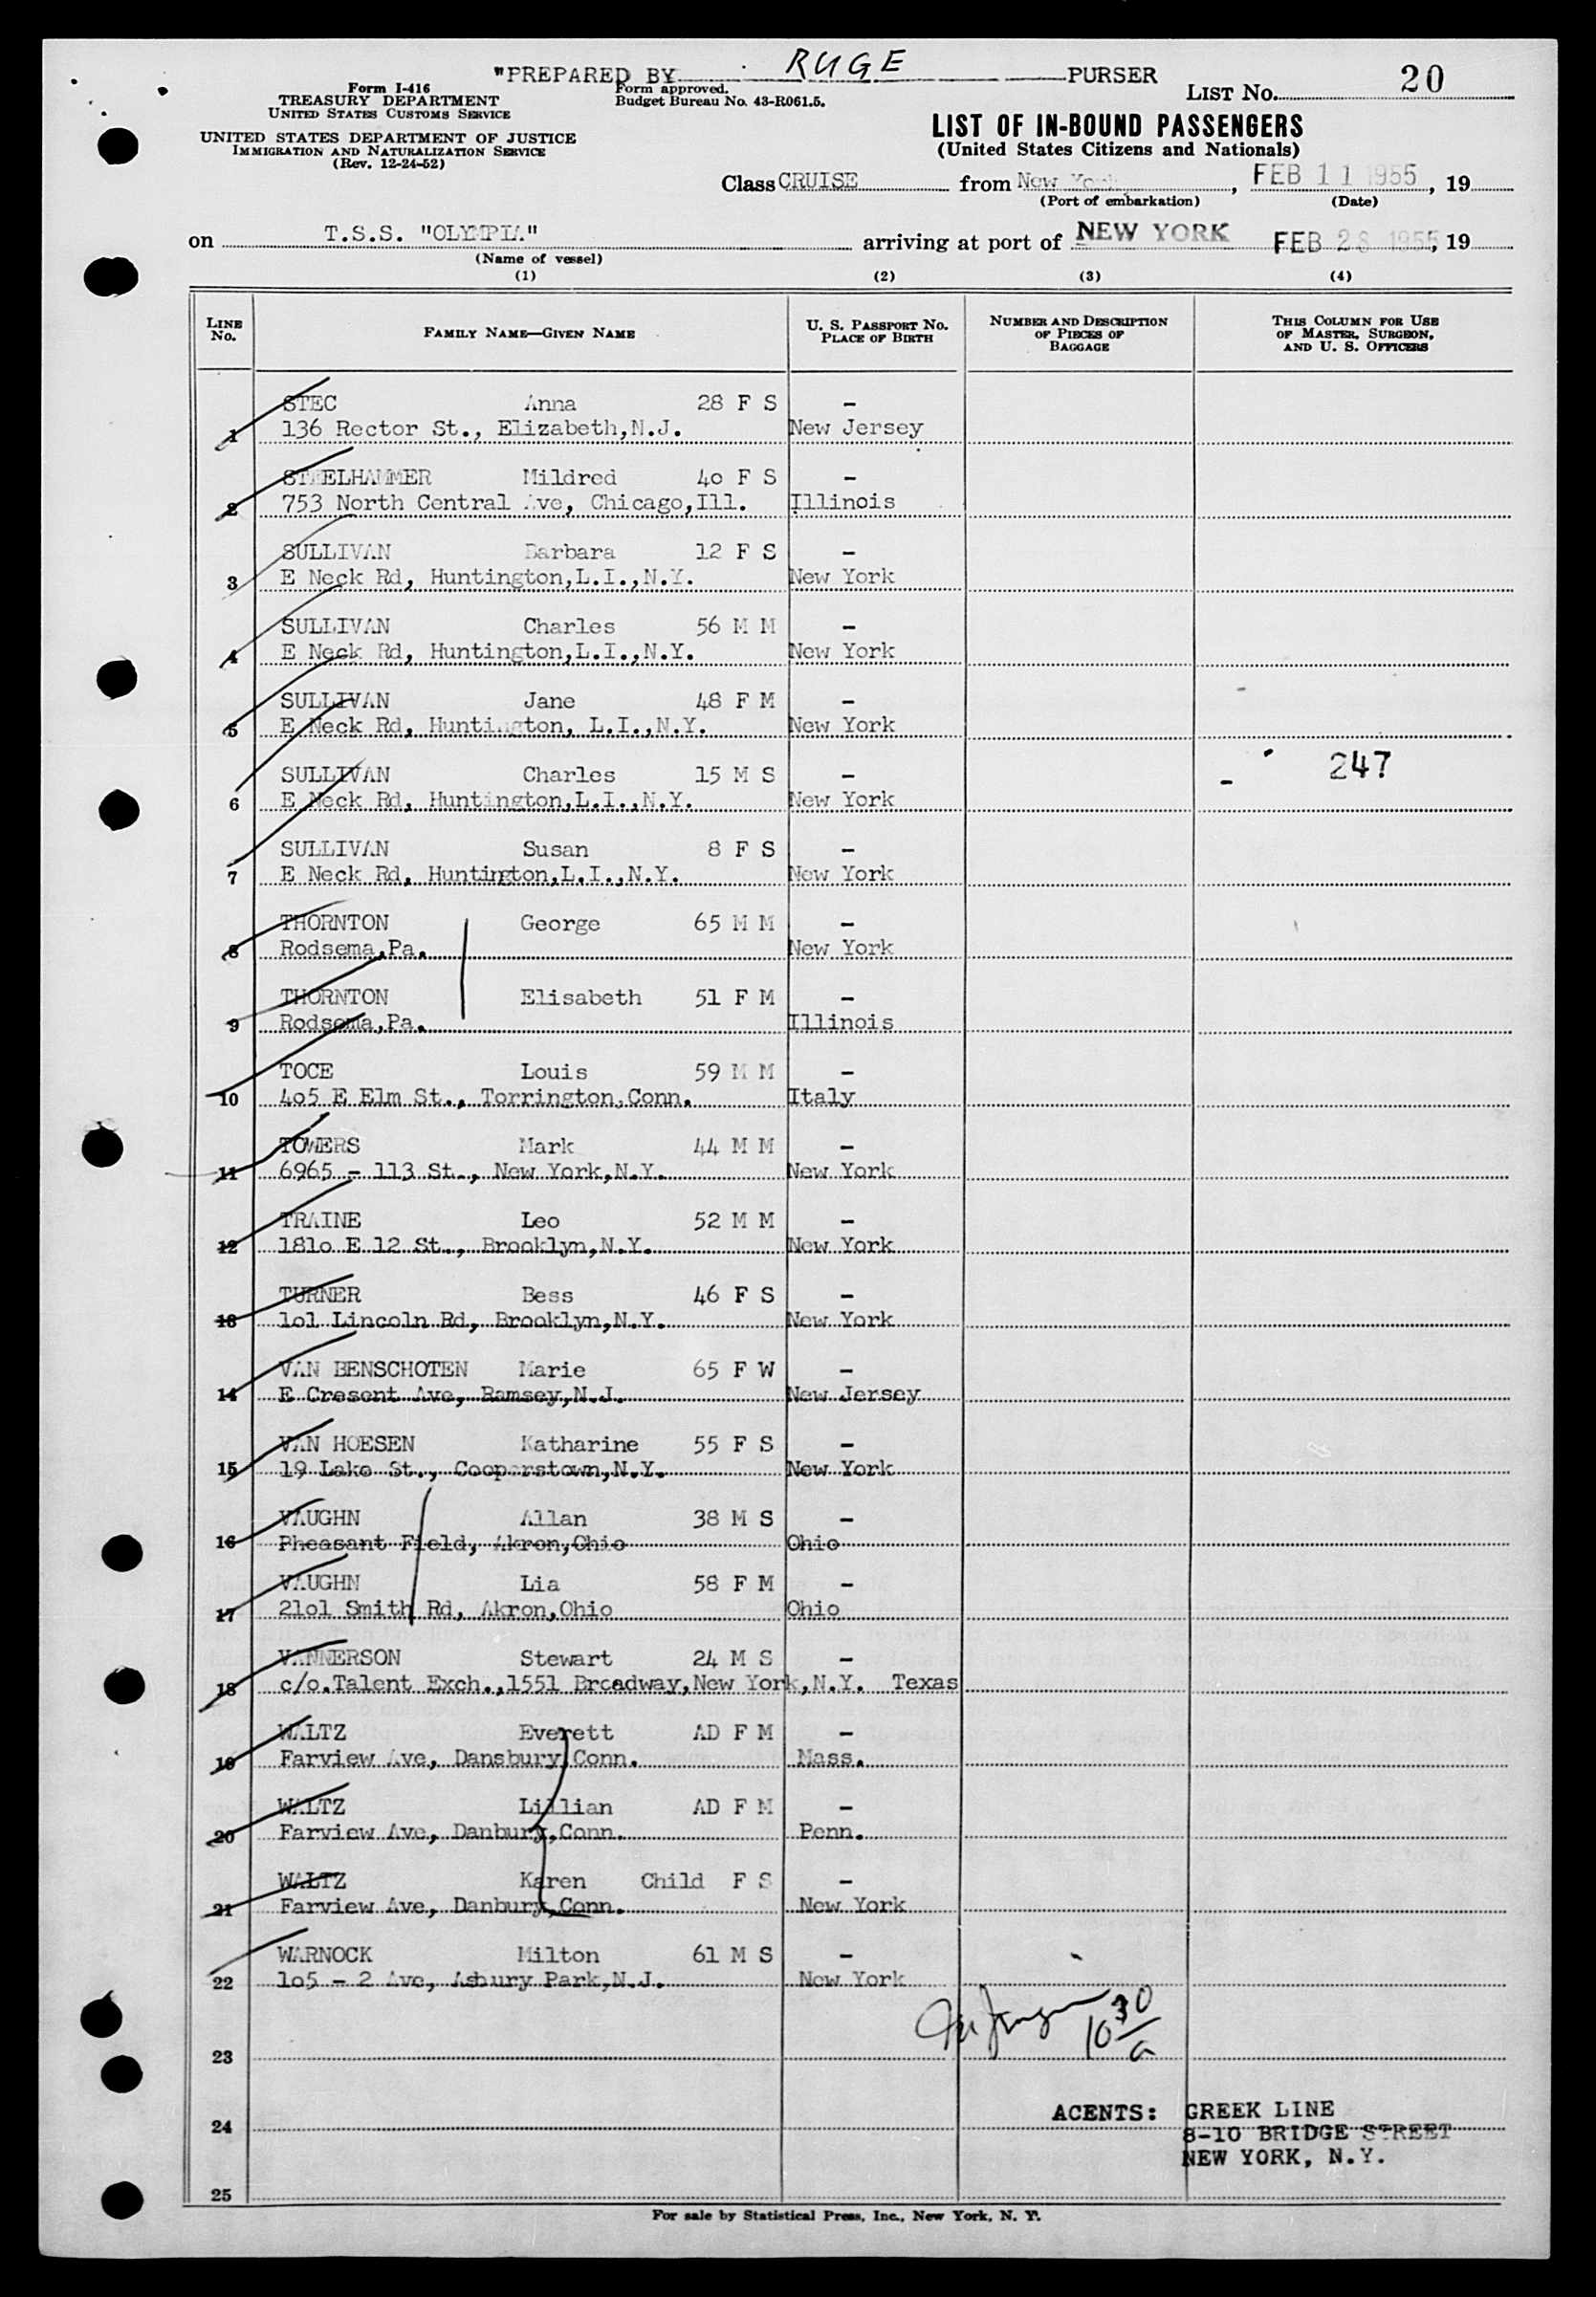 "PREPARED BY RUGE PURSER
Form I-416
TREASURY DEPARTMENT
UNITED STATES CUSTOMS SERVICE
Form approved.
Budget Bureau No. 43-R061.5.
LIST No. 20
UNITED STATES DEPARTMENT OF JUSTICE
IMMIGRATION AND NATURALIZATION SERVICE
(Rev. 12-24-52)
LIST OF IN-BOUND PASSENGERS
(United States Citizens and Nationals)
Class CRUISE from New York, FEB 11 1955, 19
(Port of embarkation) (Date)
on T.S.S. "OLYMPIA" arriving at port of NEW YORK FEB 28 1955, 19
(Name of vessel)
(1) (2) (3) (4)
LINE No. FAMILY NAME—GIVEN NAME U. S. PASSPORT No. PLACE OF BIRTH NUMBER AND DESCRIPTION OF PIECES OF BAGGAGE THIS COLUMN FOR USE OF MASTER, SURGEON, AND U. S. OFFICERS
STEC Anna 28 F S -
1 136 Rector St., Elizabeth,N.J. New Jersey
STEELHAMMER Mildred 4o F S -
2 753 North Central Ave, Chicago,Ill. Illinois
SULLIVAN Barbara 12 F S -
3 E Neck Rd, Huntington,L.I.,N.Y. New York
SULLIVAN Charles 56 M M -
4 E Neck Rd, Huntington,L.I.,N.Y. New York
SULLIVAN Jane 48 F M -
5 E Neck Rd, Huntington, L.I.,N.Y. New York
SULLIVAN Charles 15 M S - - 247
6 E Neck Rd, Huntington,L.I.,N.Y. New York
SULLIVAN Susan 8 F S -
7 E Neck Rd, Huntington,L.I.,N.Y. New York
THORNTON George 65 M M -
8 Rodsema,Pa. New York
THORNTON Elisabeth 51 F M -
9 Rodsema,Pa. Illinois
TOCE Louis 59 M M -
10 4o5 E Elm St., Torrington,Conn. Italy
TOWERS Mark 44 M M -
11 6965 - 113 St., New York,N.Y. New York
TRAINE Leo 52 M M -
12 181o E 12 St., Brooklyn,N.Y. New York
TURNER Bess 46 F S -
13 1o1 Lincoln Rd, Brooklyn,N.Y. New York
VAN BENSCHOTEN Marie 65 F W -
14 E Cresent Ave, Ramsey,N.J. New Jersey
VAN HOESEN Katharine 55 F S -
15 19 Lake St., Cooperstown,N.Y. New York
VAUGHN Allan 38 M S -
16 Pheasant Field, Akron,Ohio Ohio
VAUGHN Lia 58 F M -
17 21o1 Smith Rd, Akron,Ohio Ohio
VANNERSON Stewart 24 M S -
18 c/o.Talent Exch.,1551 Broadway,New York,N.Y. Texas
WALTZ Everett AD F M -
19 Farview Ave, Dansbury,Conn. Mass.
WALTZ Lillian AD F M -
20 Farview Ave, Danbury,Conn. Penn.
WALTZ Karen Child F S -
21 Farview Ave, Danbury,Conn. New York
WARNOCK Milton 61 M S -
22 1o5 - 2 Ave, Asbury Park,N.J. New York
10 30/a
23
24 ACENTS: GREEK LINE
8-10 BRIDGE STREET
NEW YORK, N.Y.
25
For sale by Statistical Press, Inc., New York, N. Y.